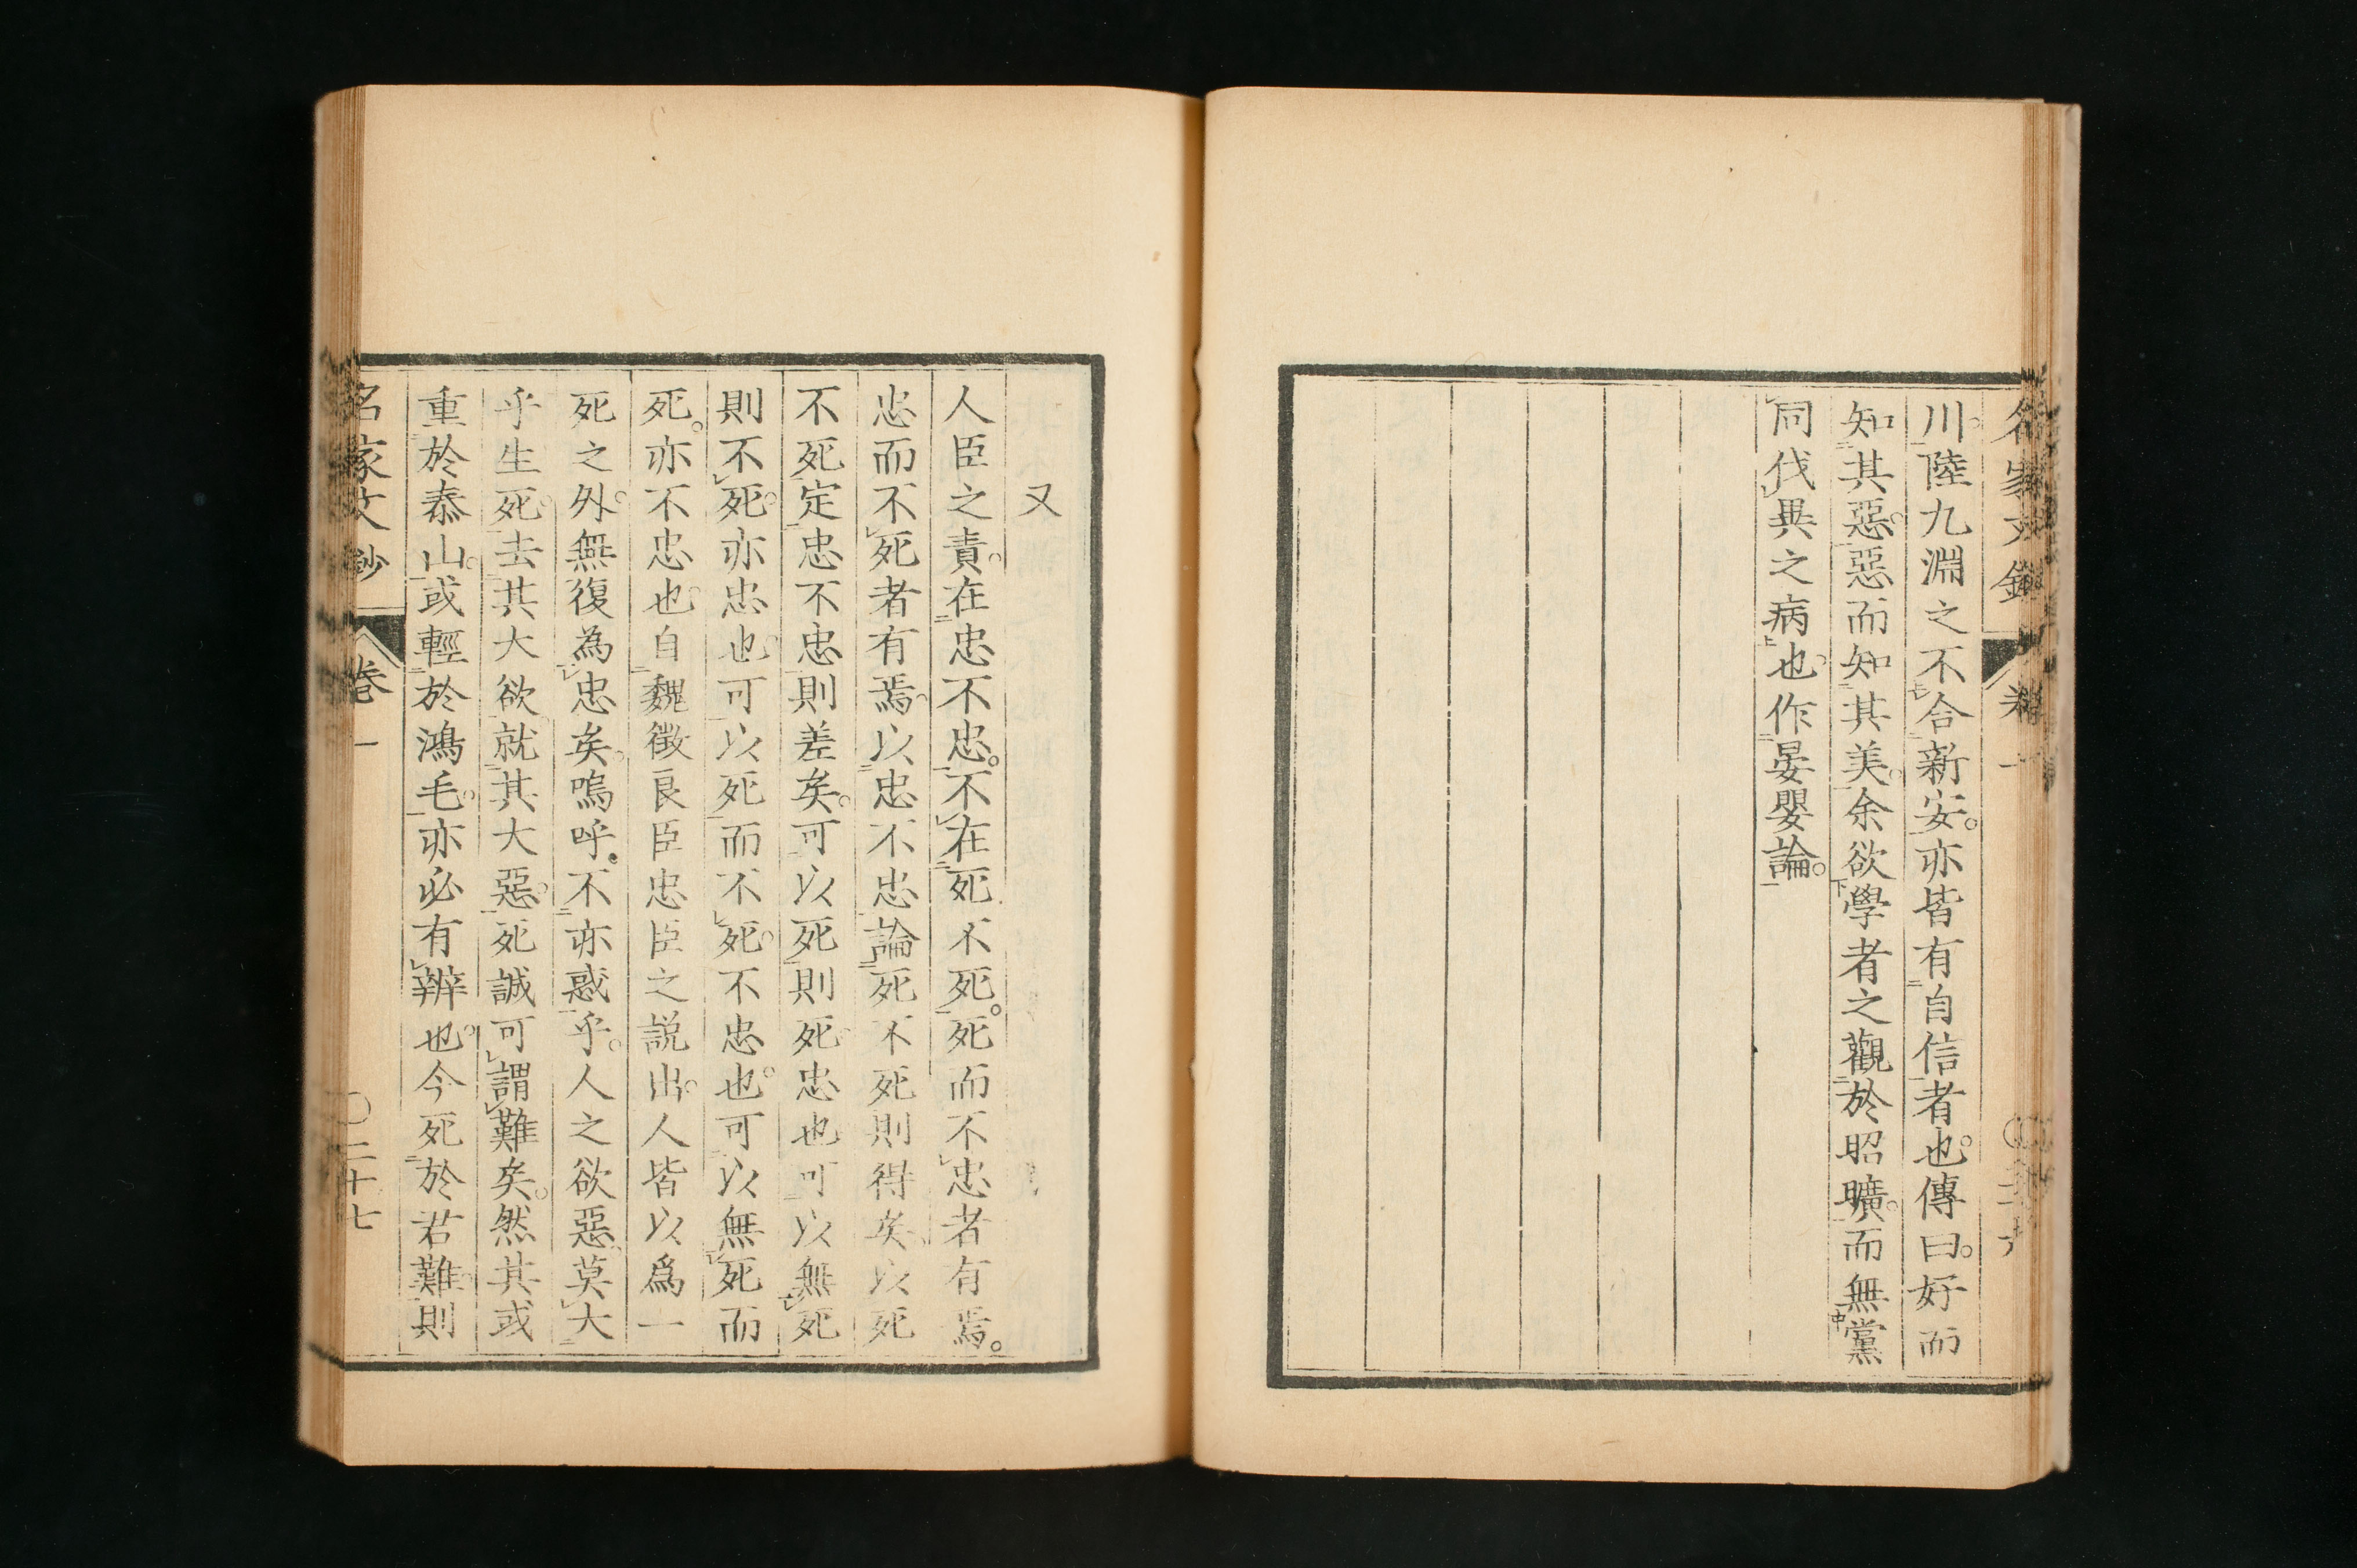 名家文鈔 卷一
川陸九淵之不合新安。亦皆有自信者也。傳曰。好而
知其惡。惡而知其美。余欲學者之觀於昭曠。而無黨
同伐異之病也。作晏嬰論。
又
人臣之責。在忠不忠。不在死不死。死而不忠者有焉。
忠而不死者有焉。以忠不忠論死不死則得矣。以死
不死定忠不忠則差矣。可以死則死。忠也可以無死
則不死。亦忠也。可以死而不死。不忠也。可以無死而
死。亦不忠也。自魏徵良臣忠臣之説出。人皆以爲一
死之外。無復為忠矣。嗚呼。不亦惑乎。人之欲惡。莫大
乎生死。去其大欲。就其大惡。死誠可謂難矣。然其或
重於泰山。或輕於鴻毛。亦必有辨也。今死於君難。則
名家文鈔 卷一 〇二十七